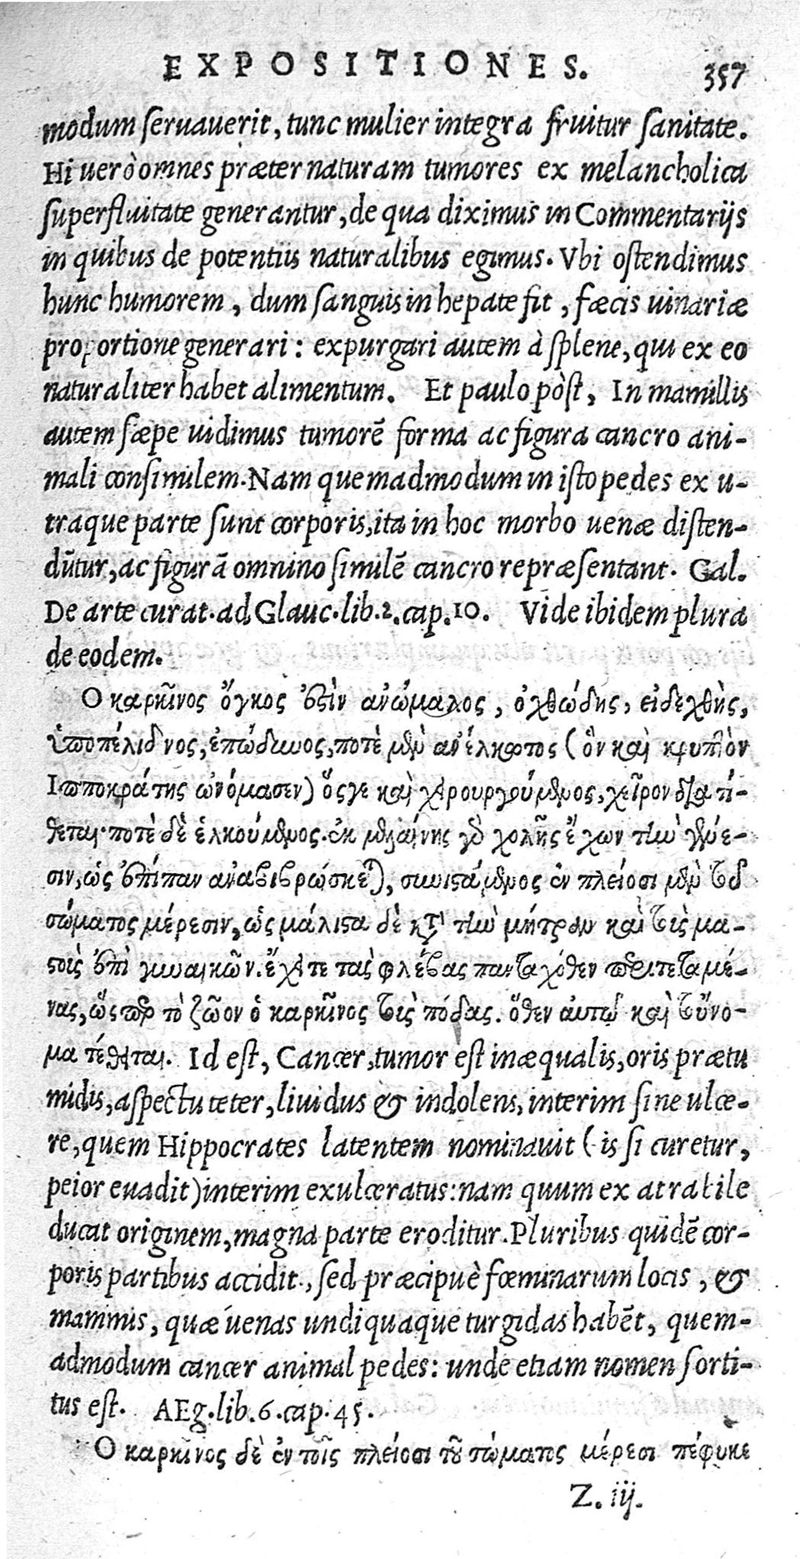 EXPOSITIONES. 357
modum seruauerit, tunc mulier integra fruitur sanitate.
Hi uerò omnes præter naturam tumores ex melancholica
superfluitate generantur, de qua diximus in Commentarijs
in quibus de potentiis naturalibus egimus. Vbi ostendimus
hunc humorem, dum sanguis in hepate fit, fæcis uinariæ
proportione generari: expurgari autem à splene, qui ex eo
naturaliter habet alimentum. Et paulo pòst, In mamillis
autem sæpe uidimus tumorē forma ac figura cancro ani-
mali consimilem. Nam quemadmodum in isto pedes ex u-
traque parte sunt corporis, ita in hoc morbo uenæ disten-
dūtur, ac figurā omnino similē cancro repræsentant. Gal.
De arte curat. ad Glauc. lib. 2. cap. 10. Vide ibidem plura
de eodem.
Ο καρκῖνος ὄγκος ἐστὶν ἀνώμαλος, ὀχθώδης, εἰδεχθὴς,
ὑποπέλιδνος, ἐπώδυνος, ποτὲ μὲν ἀνέλκωτος (ὃν καὶ κρυπτὸν
Ιπποκράτης ὠνόμασεν) ὅς γε καὶ χειρουργούμενος, χεῖρον διατί-
θεται· ποτὲ δὲ ἑλκούμενος. ἐκ μελαίνης γὸ χολῆς ἔχων τὴν γένε-
σιν, ὡς ἐπίπαν ἀναβιβρώσκεται, συνιστάμενος ἐν πλείοσι μὲν τοῦ
σώματος μέρεσιν, ὡς μάλιστα δὲ κατὰ τὴν μήτραν καὶ τοῖς μα-
στοῖς ἐπὶ γυναικῶν. ἔχει τε τὰς φλέβας πανταχόθεν περιτεταμέ-
νας, ὥσπερ τὸ ζῶον ὁ καρκῖνος τοὺς πόδας. ὅθεν αὐτῷ καὶ τοὔνο-
μα τέθειται. Id est, Cancer, tumor est inæqualis, oris prætu
midis, aspectu teter, liuidus & indolens, interim sine ulce-
re, quem Hippocrates latentem nominauit (is si curetur,
peior euadit) interim exulceratus: nam quum ex atra bile
ducat originem, magna parte eroditur. Pluribus quidē cor-
poris partibus accidit, sed præcipuè fœminarum locis, &
mammis, quæ uenas undiquaque turgidas habēt, quem-
admodum cancer animal pedes: unde etiam nomen sorti-
tus est. AEg. lib. 6. cap. 45.
Ο καρκίνος δὲ ἐν τοῖς πλείοσι τοῦ σώματος μέρεσι πέφυκε
Z. iij.